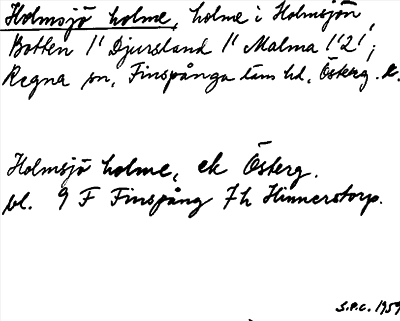 Holmsjö holme, holme i Holmsjön,
Botten 1' Djursland 1' Malma 1'2';
Regna sn, Finspånga läns hd, Österg. l.
Holmsjö holme, ek Österg.
bl. 9 F Finspång 7h Hinnerstorp.
S.P.C. 1959